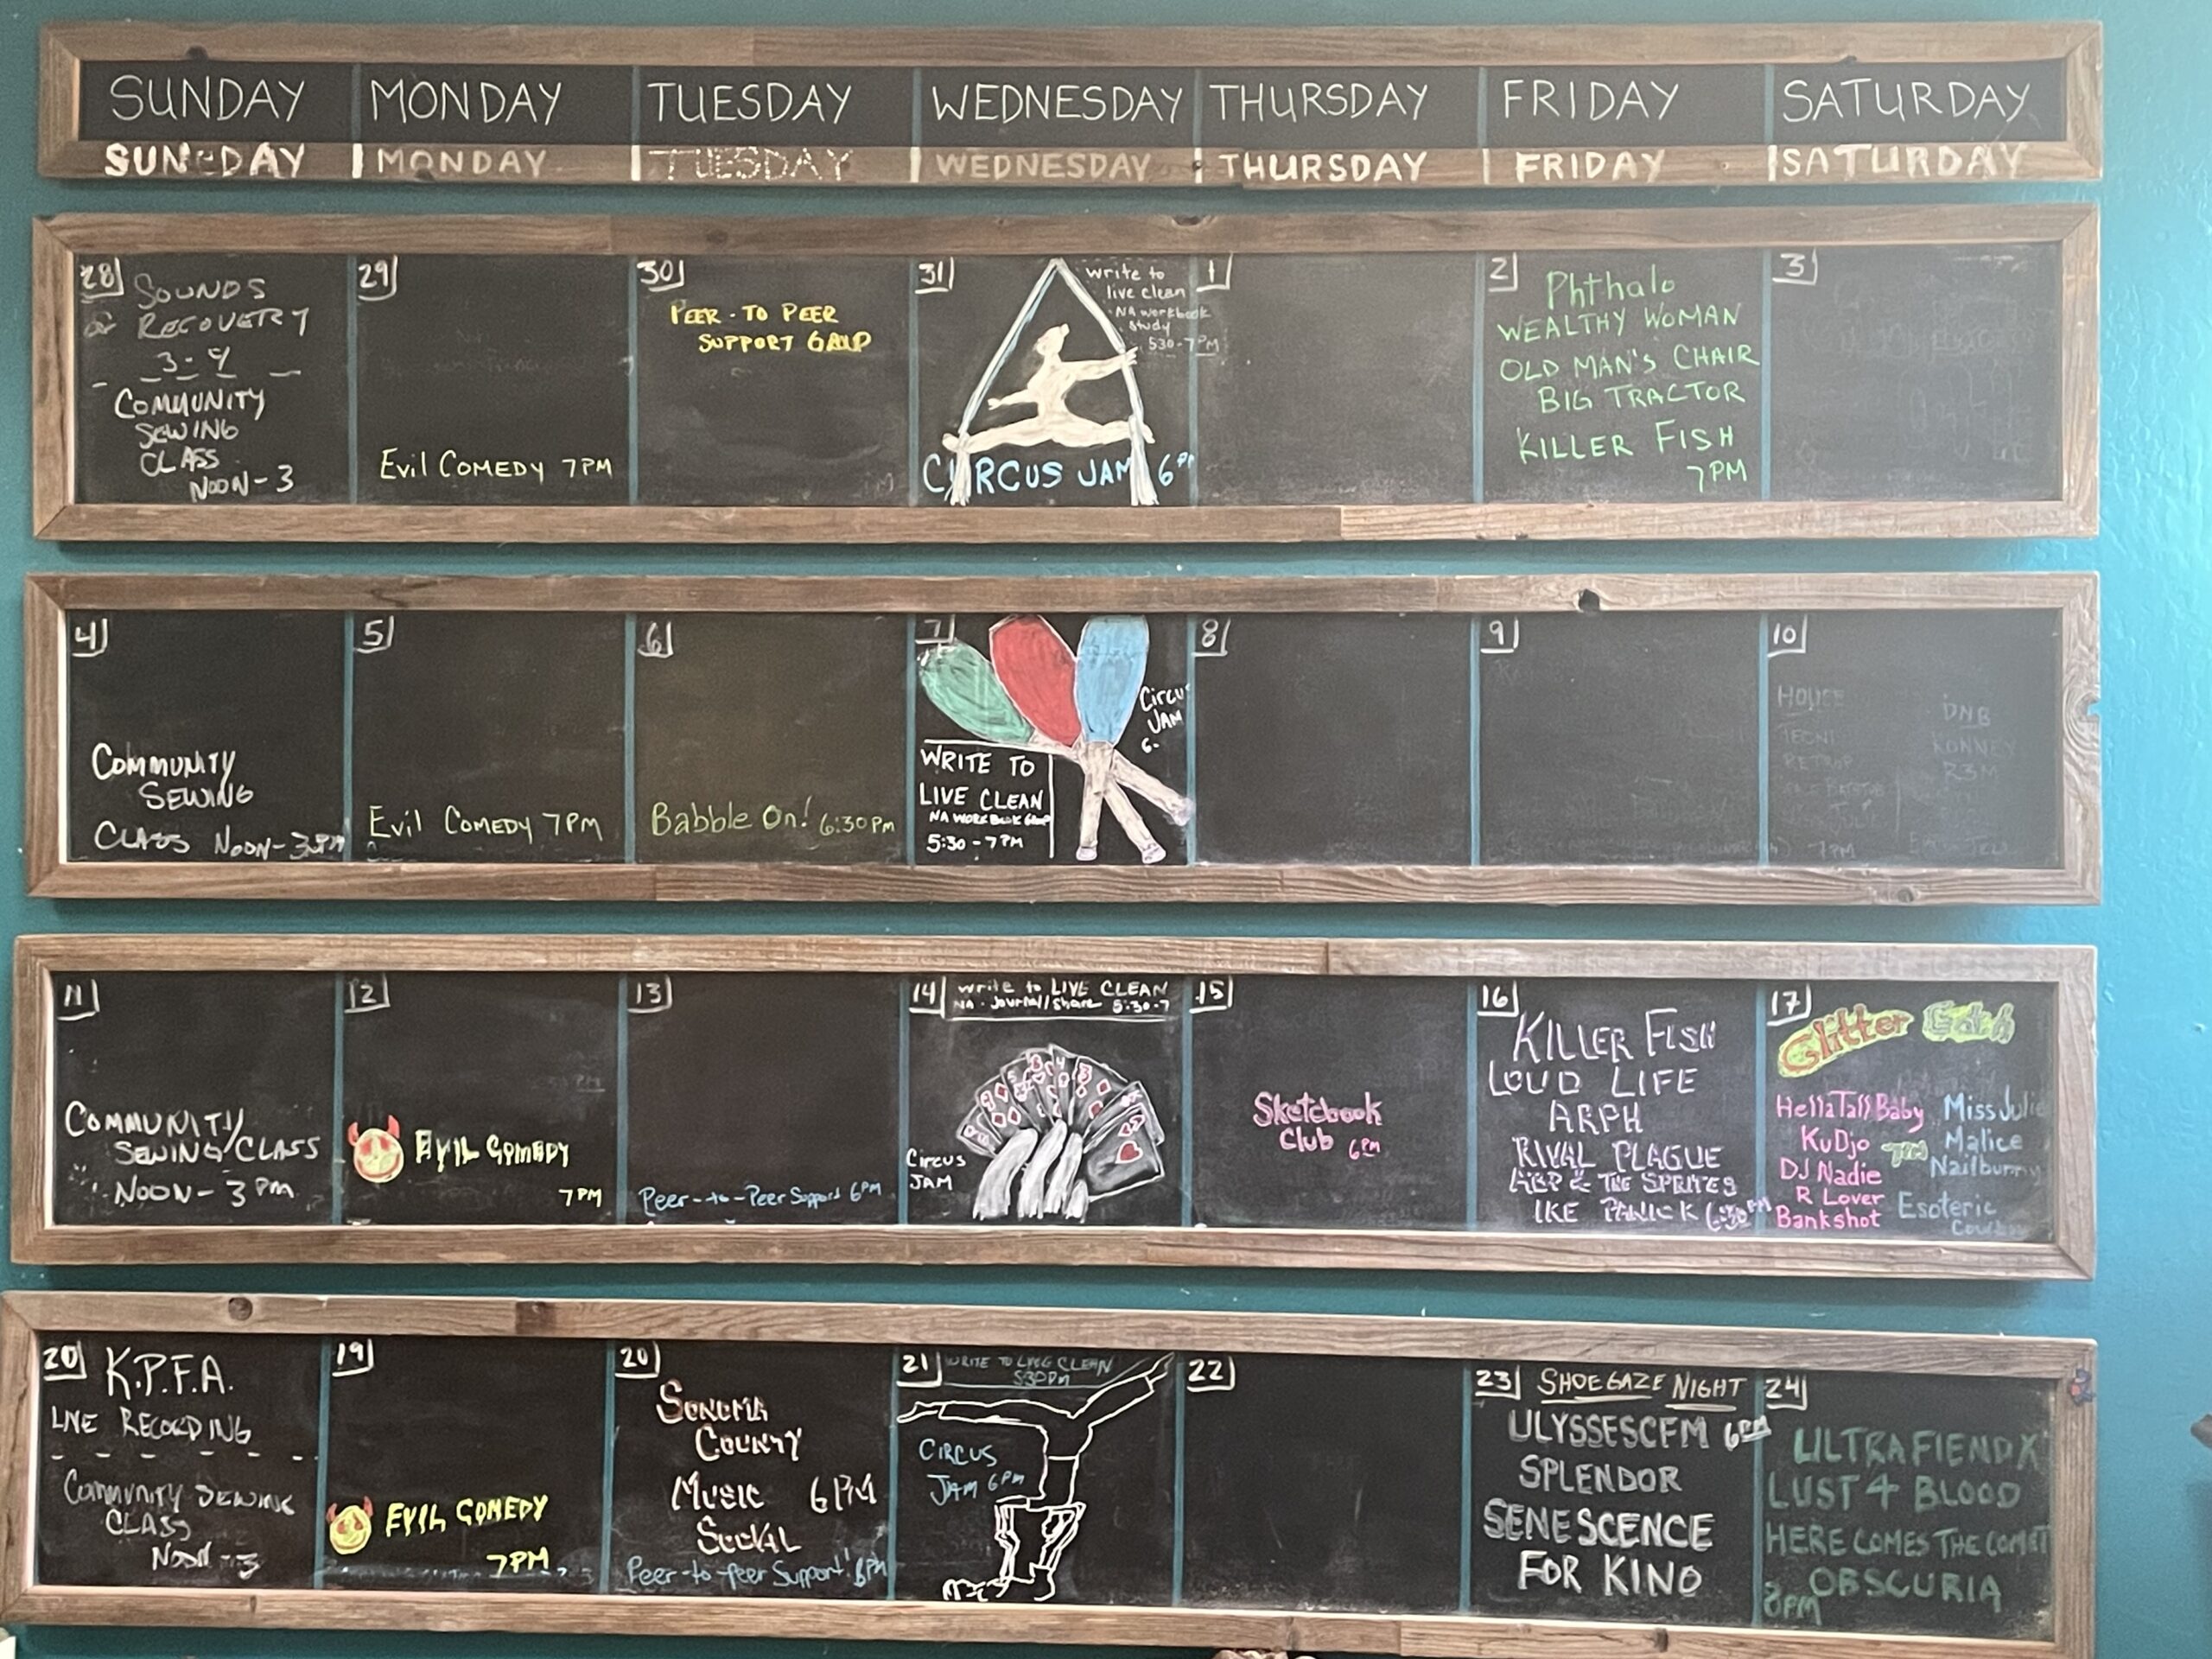 SUNDAY MONDAY TUESDAY WEDNESDAY THURSDAY FRIDAY SATURDAY
SUNDAY MONDAY TUESDAY WEDNESDAY THURSDAY FRIDAY SATURDAY
28
SOUNDS
RECOVERY
3-
COMMUNITY
SEWING
CLASS
NOON-3
29
Evil COMEDY 7PM
30
PEER-TO PEER
SUPPORT GROUP
31
write to
live clean
NA workbook
study
530-7PM
CIRCUS JAM 6PM
1
2
Phthalo
WEALTHY WOMAN
OLD MAN'S CHAIR
BIG TRACTOR
KILLER FISH
7PM
3
4
COMMUNITY
SEWING
CLASS NOON-3PM
5
Evil COMEDY 7PM
6
Babble On! 6:30PM
7
Circu
JAM
6
WRITE TO
LIVE CLEAN
NA WORKBOOK GROUP
5:30-7PM
8
9
10
HOUSE
DNB
7PM
11
COMMUNITY
SEWING CLASS
NOON-3PM
12
EVIL COMEDY
7PM
13
Peer-to-Peer Support 6PM
14
write to LIVE CLEAN
NA-Journal/Share 5:30-7
CIRCUS
JAM
15
Sketchbook
Club 6PM
16
KILLER FISH
LOUD LIFE
ARPH
RIVAL PLAGUE
ABP & THE SPRITES
IKE PANICK 6:30PM
17
Glitter
HellaTallBaby
KuDjo
DJ Nadie
R Lover
Bankshot
7PM
Miss Julie
Malice
Nailbunny
Esoteric
20
K.P.F.A.
LIVE RECORDING
Community SEWING
CLASS
NOON-3
19
EVIL COMEDY
7PM
20
SONOMA
COUNTY
MUSIC 6PM
SOCIAL
Peer-to-Peer Support! 6PM
21
WRITE TO LIVE CLEAN
530PM
CIRCUS
JAM 6PM
22
23
SHOEGAZE NIGHT
ULYSSESCFM 6PM
SPLENDOR
SENESCENCE
FOR KINO
24
ULTRAFIENDX
LUST 4 BLOOD
HERE COMES THE COMET
OBSCURIA
8PM